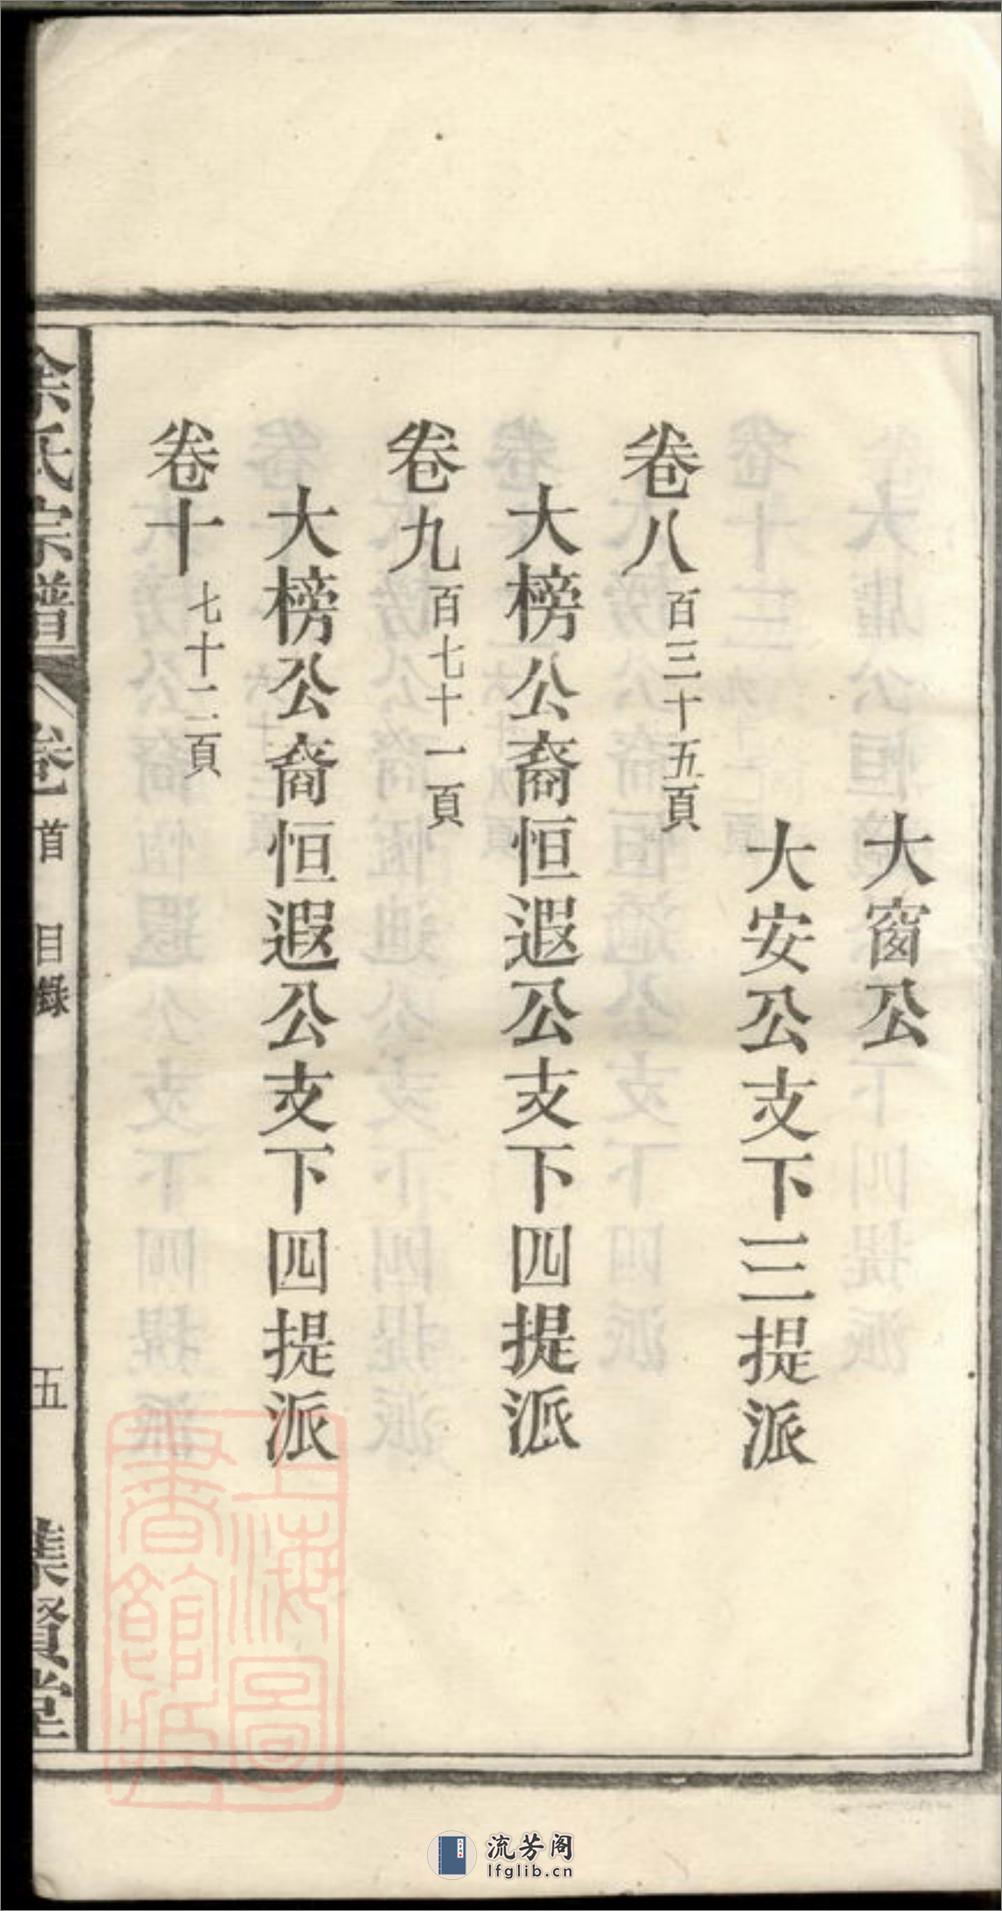 大窗公
大安公支下三提派
卷八百三十五頁
大榜公裔恒遐公支下四提派
卷九百七十一頁
大榜公裔恒遐公支下四提派
卷十七十二頁
徐氏宗譜 卷首 目錄 五 集賢堂
上海圖書館藏
流芳阁
lfglib.cn